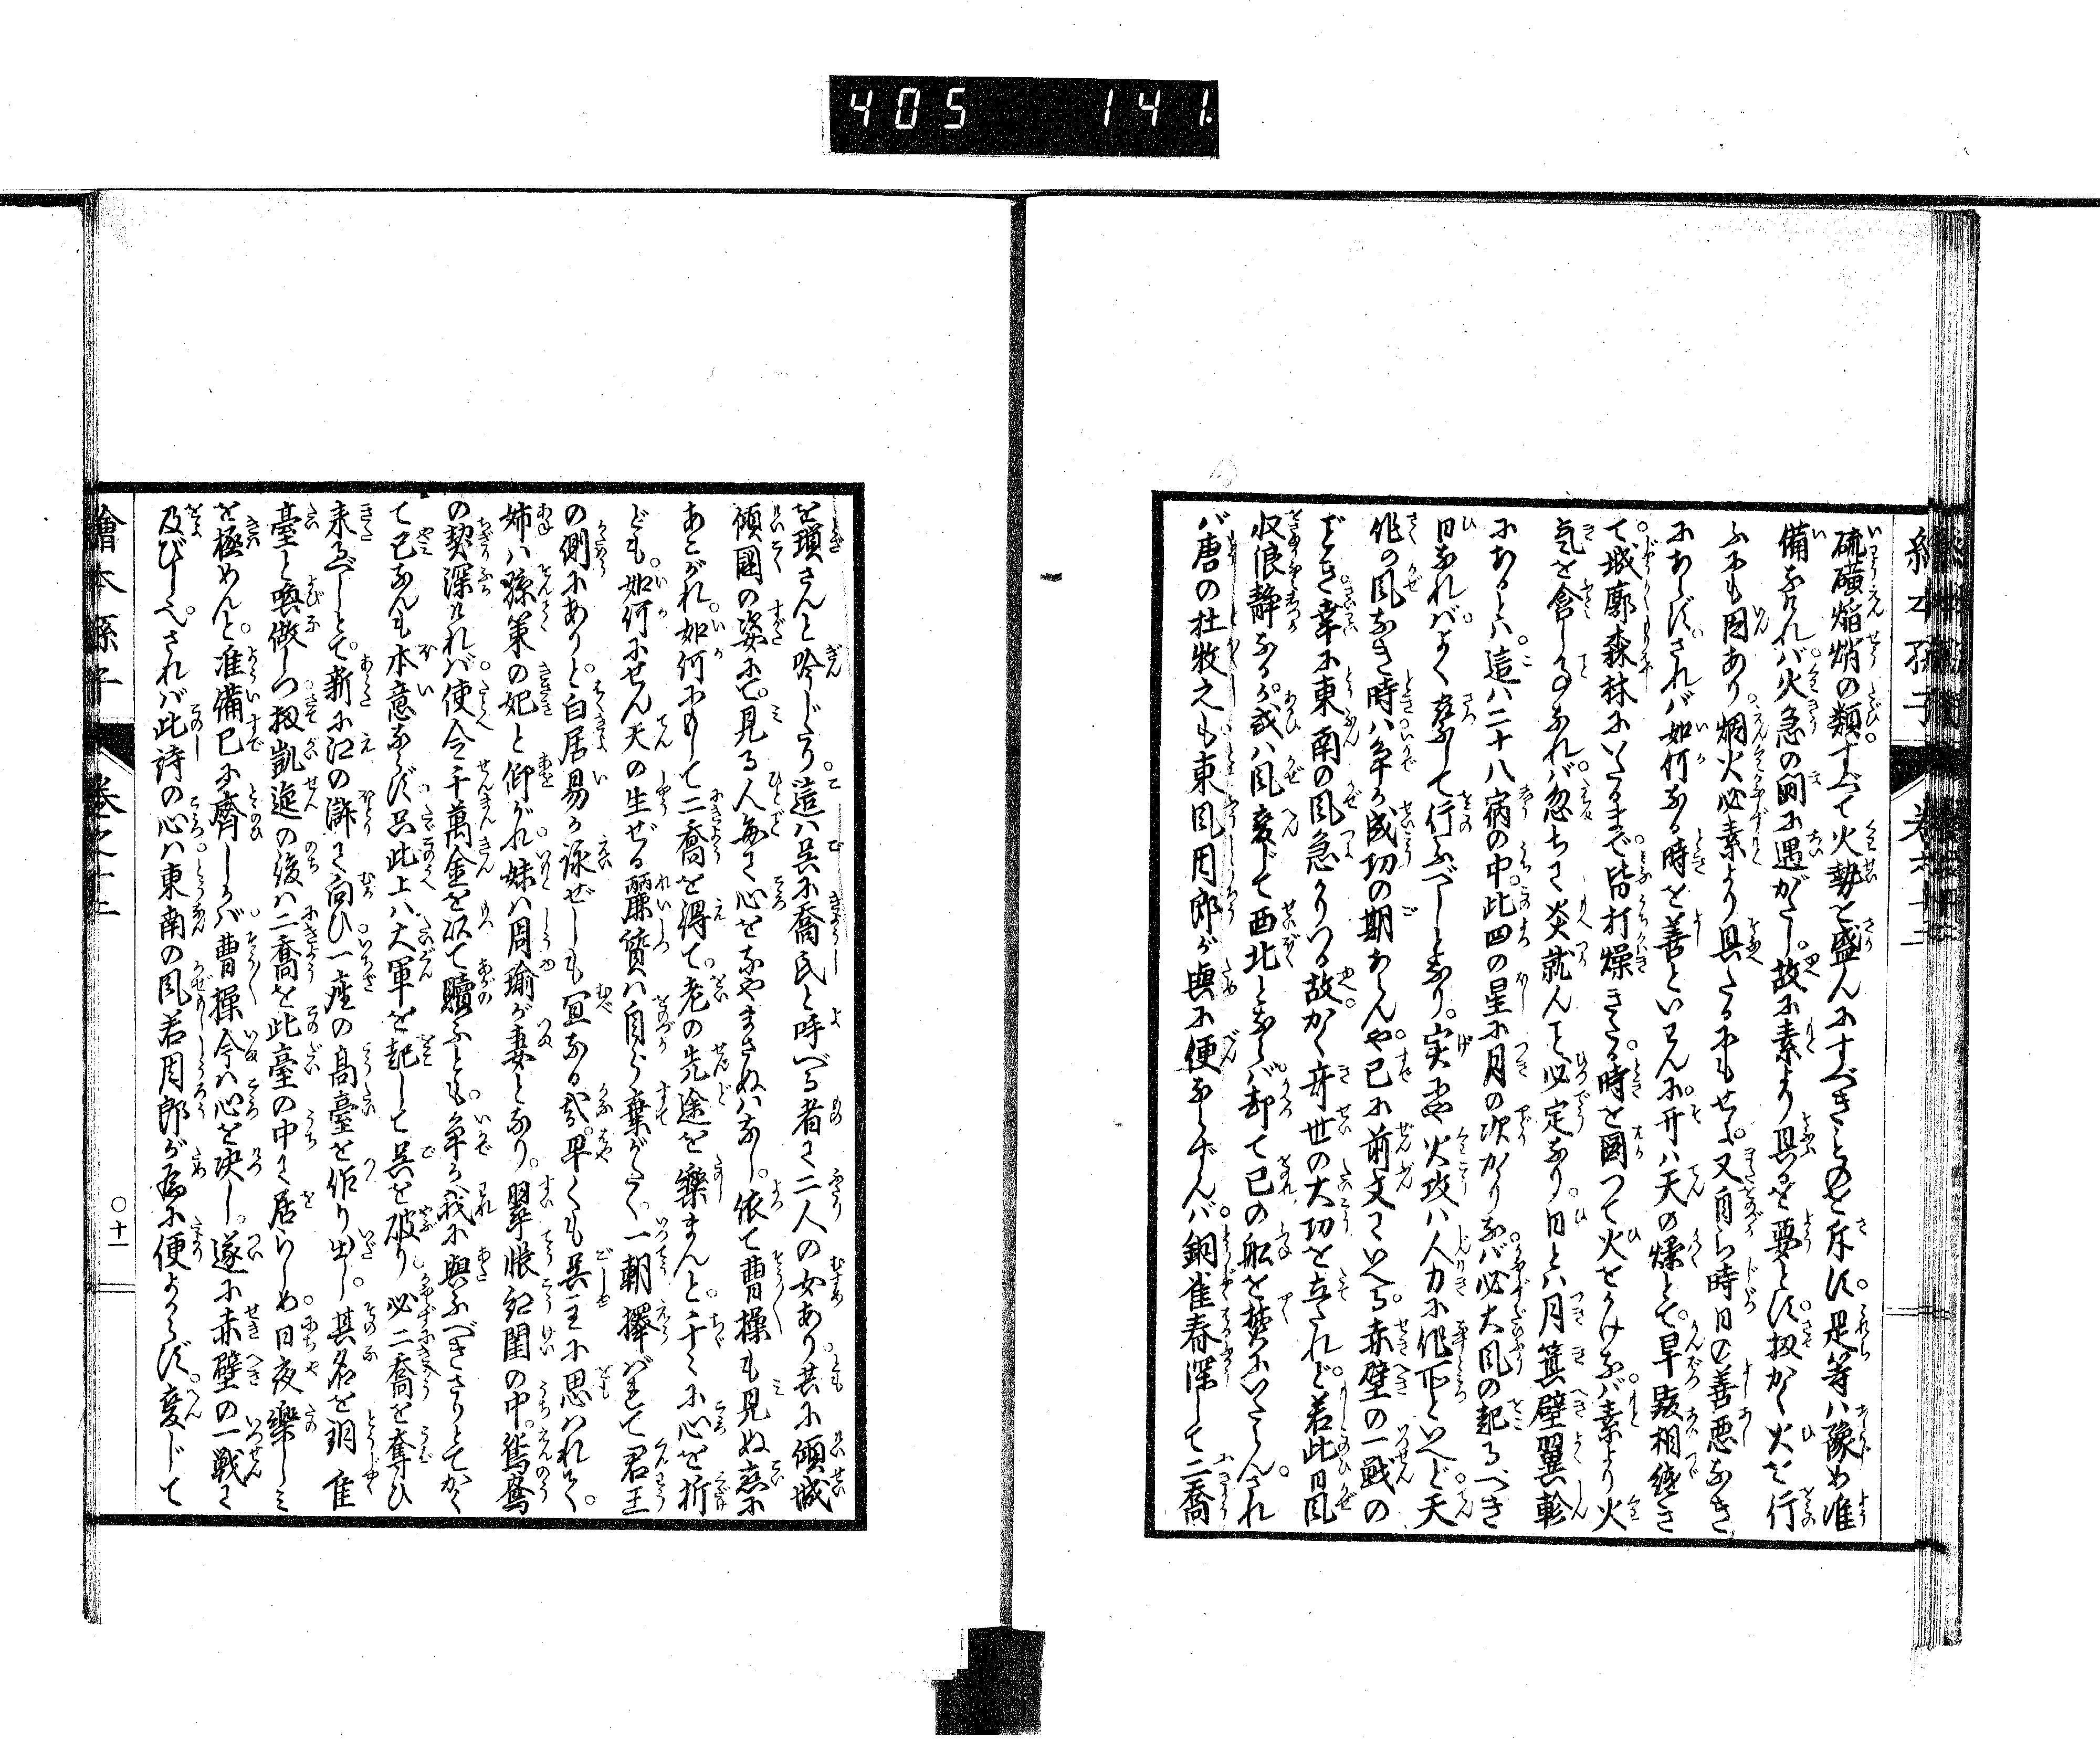 405 141.
硫磺焔焇の類すべて火勢を盛んにすべきものを斥す。是等ハ豫め准
備なけれバ火急の間に遇がたし。故に素より具るを要とす。扨かく火を行
ふにも因あり。烟火必素より具たるにもせよ。又自ら時日の善悪なき
にあらず。されバ如何なる時を善といはんに。开ハ天の燥とて。旱蕟相続き
て城廓森林にいたるまで皆打燥きたる時を図つて火をかけなバ素より火
気を含しものなれバ。忽ちに炎就んこと必定なり。日とハ月箕壁翼軫
にあるとハ。這ハ二十八宿の中此四の星に月の次かりなバ必大風の起るべき
日なれバ。よく察して行ふべしとなり。実にや火攻ハ人力に作所といへど。天
作の風なき時ハ争か成功の期あらんや。已に前文にいへる赤壁の一戦の
ごとき。幸に東南の風急かりつる故。かく奇世の大功を立たれど。若此日風
収浪静なるか。或ハ風変じて西北となるバ却て己の船を焚にいたらん。され
バ唐の杜牧之も東風周郎が與に便ならずんバ。銅雀春深して二喬
を鎖さんと吟じたり。這ハ呉に喬氏と呼べる者に二人の女あり。共に傾城
傾國の姿にて。見る人毎に心をなやまさぬハなし。依て曹操も見ぬ恋に
あこがれ。如何にもして二喬を得て。老の先途を樂まんと。千々に心を折
ども。如何にせん天の生ぜる麗質ハ自ら棄がたく。一朝擇バれて君王
の側にありと。白居易が詠ぜしも宜なる哉。早くも呉主に思ハれて。
姉ハ孫策の妃と仰がれ。妹ハ周瑜が妻となり。翠帳紅閨の中。鴛鴦
の契深けれバ。使令千萬金を以て贖ふとも。争か我に與ふべきさりとてかく
て已なんも本意ならず。只此上ハ大軍を起して呉を破り。必二喬を奪ひ
来るべしとて。新に江の滸に向ひ一座の高臺を作り出し。其名を銅雀
臺と喚做しつ。扨凱旋の後ハ二喬を此臺の中に居らしめ。日夜樂しミ
を極めんと准備已に齊しかバ。曹操今ハ心を决し。遂に赤壁の一戦に
及びしとぞ。されバ此詩の心ハ東南の風若周郎が為に便よからず。変じて
繪本孫子 巻之十二 〇十一